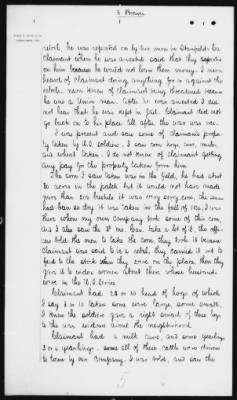 rebel, he was reported on by two men in
claimant when he was arrested said that they reported
on him because he would not loan them money. I never
heard of claimant doing anything for or against the
rebels. Never knew of claimant being threatened because
he was a Union man. After he was arrested I did
not hear that he was kept in jail. Claimant did not
go back on to his place till after the war was over.
I was present and saw some of claimants prope
taken by U.S. soldiers. I saw corn, hogs, cows,
and wheat taken. I do not know of claimant getting
any pay for the property taken from him.
The corn I saw taken was in the field, he had about
30 acres in the patch but it would not have made
over than 200 bushels it was very sorry corn, the sea-
had been so dry it was taken in the fall of 186, I was
there when my own company got some of this corn
and I also saw the 8" Mo. Cav. take a lot of it, the offi-
cers told the men to take the corn, they took it because
claimant was said to be a rebel, they carried it out to
feed to the stock when they were on the place, then they
gave it to widow women about there whose husbands
were in the U.S. Service
Claimant had 25 or 30 head of hogs of which
I say 8 or 10 taken some were large, some small,
I knew the soldiers gave a right smart of these hogs
to the war widows about the neighborhood
Claimant had 3 milk cows, and some yearling
2 or 3 yearlings. some all of these cattle were driven
to town by our Company. I was told, and saw the